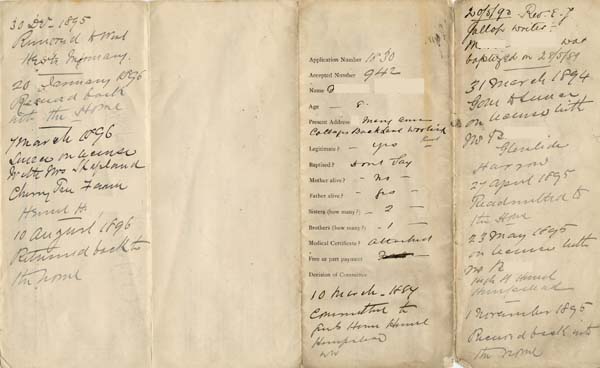 30 Dec. 1895
Removed to West
Herts Infirmary.
20 January 1896
Received back
into the Home
7 March 1896
on license
with Mrs
Cherry Tree Farm
Hemel H.
10 August 1896
Returned back to
the Home
Application Number 1830
Accepted Number 942
Name
Age — 8.
Present Address Mary Ann
Cottages Buckland
Legitimate? — yes
Baptized? — Don't Say
Mother alive? — No —
Father alive? — yes —
Sisters (how many?) — 2 —
Brothers (how many?) — 1 —
Medical Certificate? Attached
Free or part payment
Decision of Committee
10 March 1889
Committed to
Home Hemel
Hempstead
20/5/93 Rev. E. J.
Gallop writes
M was
baptized on 28/5/89
31 March 1894
on license with
Mr B
Glenlide
Harrow
27 April 1895
Readmitted to
the Home
23 May 1895
on license with
Mr R
High St Hemel
Hempstead
1 November 1895
Received back into
the Home